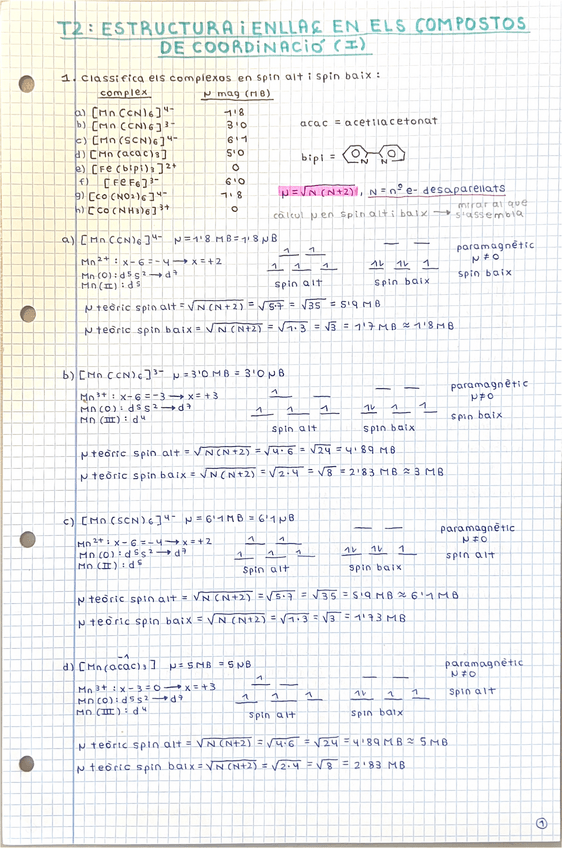 T2: ESTRUCTURA i ENLLAÇ EN ELS COMPOSTOS
DE COORDINACIÓ (I)
1. Classifica els complexos en spin alt i spin baix:
complex μ mag (MB)
a) [Mn(CN)6]4- 1'8
b) [Mn(CN)6]3- 3'0
c) [Mn(SCN)6]4- 6'1
d) [Mn(acac)3] 5'0
e) [Fe(bipi)3]2+ 0
f) [FeF6]3- 6'0
g) [Co(NO2)6]4- 1'8
h) [Co(NH3)6]3+ 0
acac = acetilacetonat
bipi =
N N
μ=√N(N+2), N = nº e- desaparellats
càlcul μ en spin alt i baix → mirar al que
s'assembla
a) [Mn(CN)6]4- μ=1'8 MB=1'8 μB
Mn2+: x-6=-4 → x=+2
Mn(0): d5s2 → d7
Mn(II): d5
spin alt spin baix
paramagnètic
μ≠0
spin baix
μ teòric spin alt = √N(N+2) = √5·7 = √35 = 5'9 MB
μ teòric spin baix = √N(N+2) = √1·3 = √3 = 1'7 MB ≈ 1'8 MB
b) [Mn(CN)6]3- μ=3'0 MB = 3'0 μB
Mn3+: x-6=-3 → x=+3
Mn(0): d5s2 → d7
Mn(III): d4
spin alt spin baix
paramagnètic
μ≠0
spin baix
μ teòric spin alt = √N(N+2) = √4·6 = √24 = 4'89 MB
μ teòric spin baix = √N(N+2) = √2·4 = √8 = 2'83 MB ≈ 3 MB
c) [Mn(SCN)6]4- μ=6'1 MB = 6'1 μB
Mn2+: x-6=-4 → x=+2
Mn(0): d5s2 → d7
Mn(II): d5
spin alt spin baix
paramagnètic
μ≠0
spin alt
μ teòric spin alt = √N(N+2) = √5·7 = √35 = 5'9 MB ≈ 6'1 MB
μ teòric spin baix = √N(N+2) = √1·3 = √3 = 1'73 MB
-1
d) [Mn(acac)3] μ=5MB = 5μB
Mn3+: x-3=0 → x=+3
Mn(0): d5s2 → d7
Mn(III): d4
spin alt spin baix
paramagnètic
μ≠0
spin alt
μ teòric spin alt = √N(N+2) = √4·6 = √24 = 4'89 MB ≈ 5 MB
μ teòric spin baix = √N(N+2) = √2·4 = √8 = 2'83 MB
1